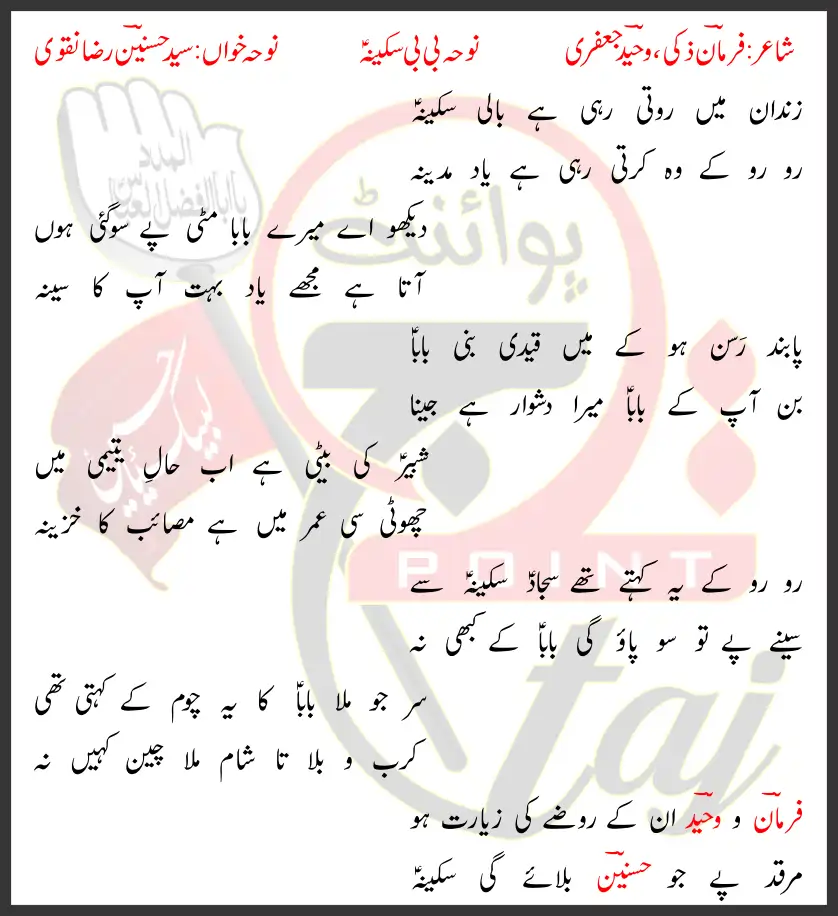 شاعر: فرمانؔ ذکی، وحیدؔ جعفری نوحہ بی بی سکینہؑ نوحہ خواں: سید حسنینؔ رضا نقوی
زندان میں روتی رہی ہے بالی سکینہؑ
رو رو کے وہ کرتی رہی ہے یاد مدینہ
دیکھو اے میرے بابا مٹی پے سوگئی ہوں
آتا ہے مجھے یاد بہت آپ کا سینہ
پابند رَسن ہو کے میں قیدی بنی باباؑ
بن آپ کے باباؑ میرا دشوار ہے جینا
شبیرؑ کی بیٹی ہے اب حالِ یتیمی میں
چھوٹی سی عمر میں ہے مصائب کا خزینہ
رو رو کے یہ کہتے تھے سجادؑ سکینہؑ سے
سینے پے تو سو پاؤ گی باباؑ کے کبھی نہ
سر جو ملا باباؑ کا یہ چوم کے کہتی تھی
کرب و بلا تا شام ملا چین کہیں نہ
فرمانؔ و وحیدؔ ان کے روضے کی زیارت ہو
مرقد پے جو حسنینؔ بلائے گی سکینہؑ
المدد
یا ابالفضل العباس
لبیک یا حسین
پوائنٹ
POINT
taj